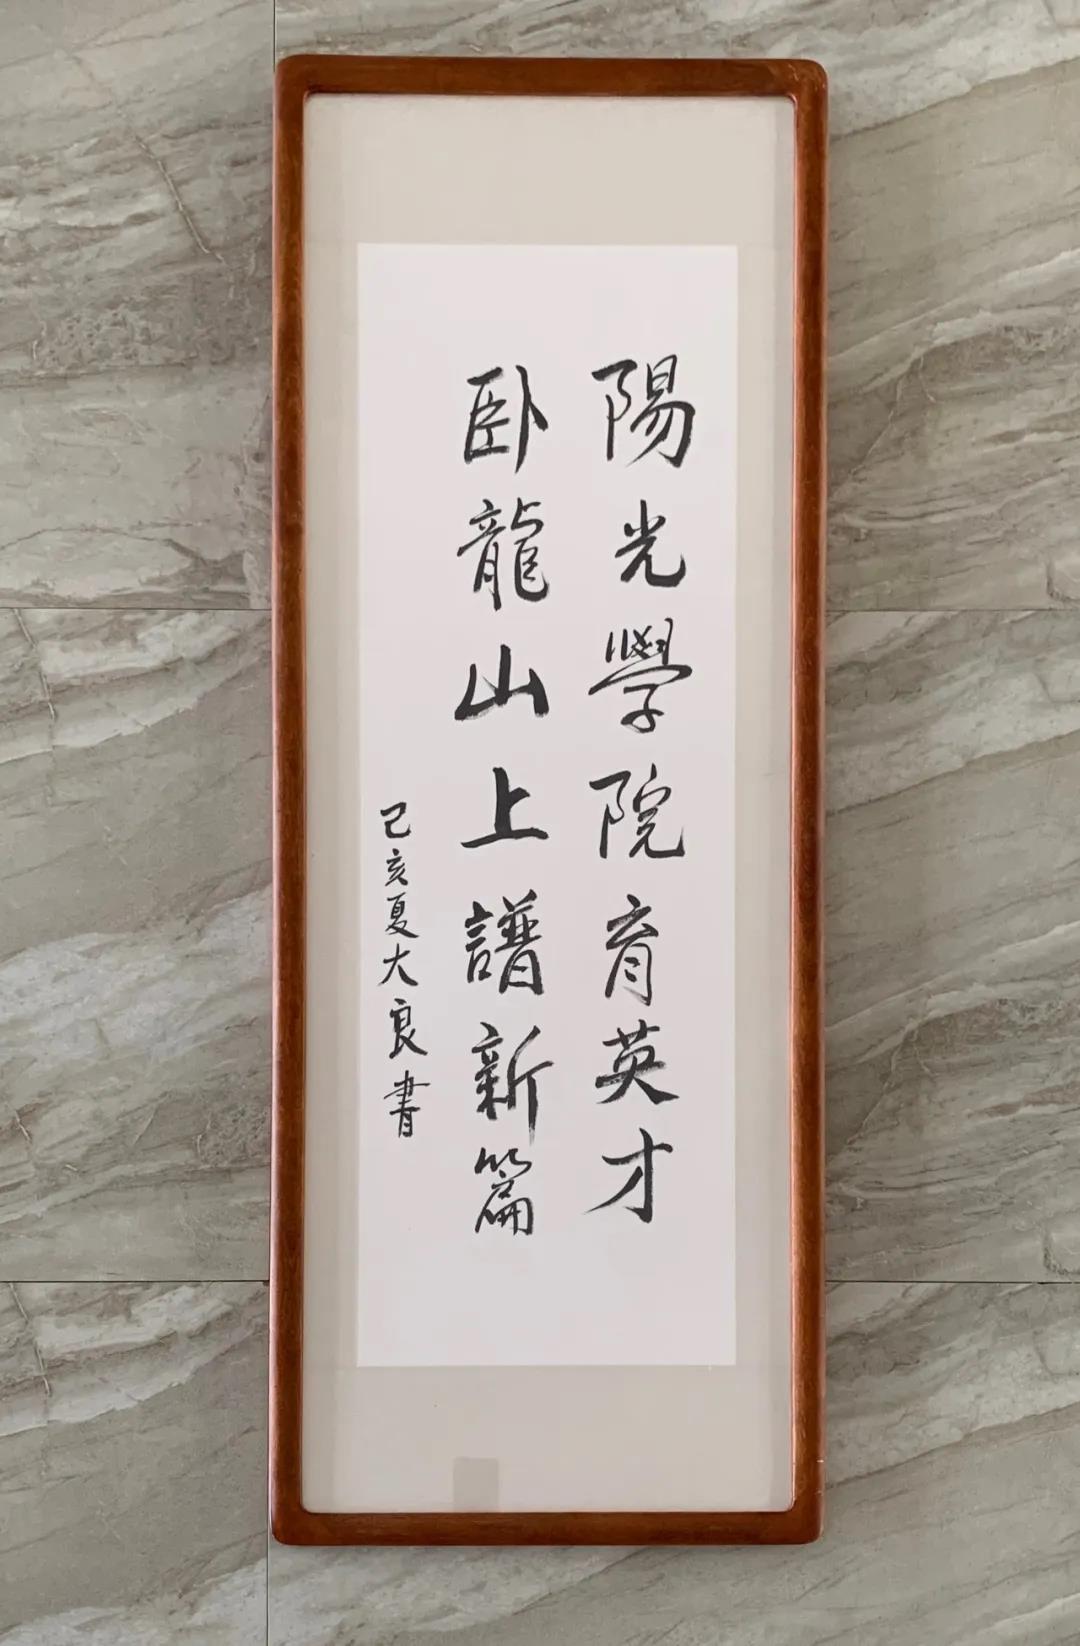 陽光學院育英才
卧龍山上譜新篇
己亥夏大良書